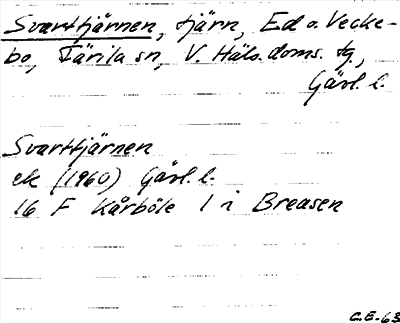 Svarttjärnen, tjärn, Ed o. Vecke-
bo, Färila sn, V. Häls. doms. tg.,
Gävl. l.
Svarttjärnen
ek (1960) Gävl. l.
16 F Kårböle 1 i Breasen
C.E-63